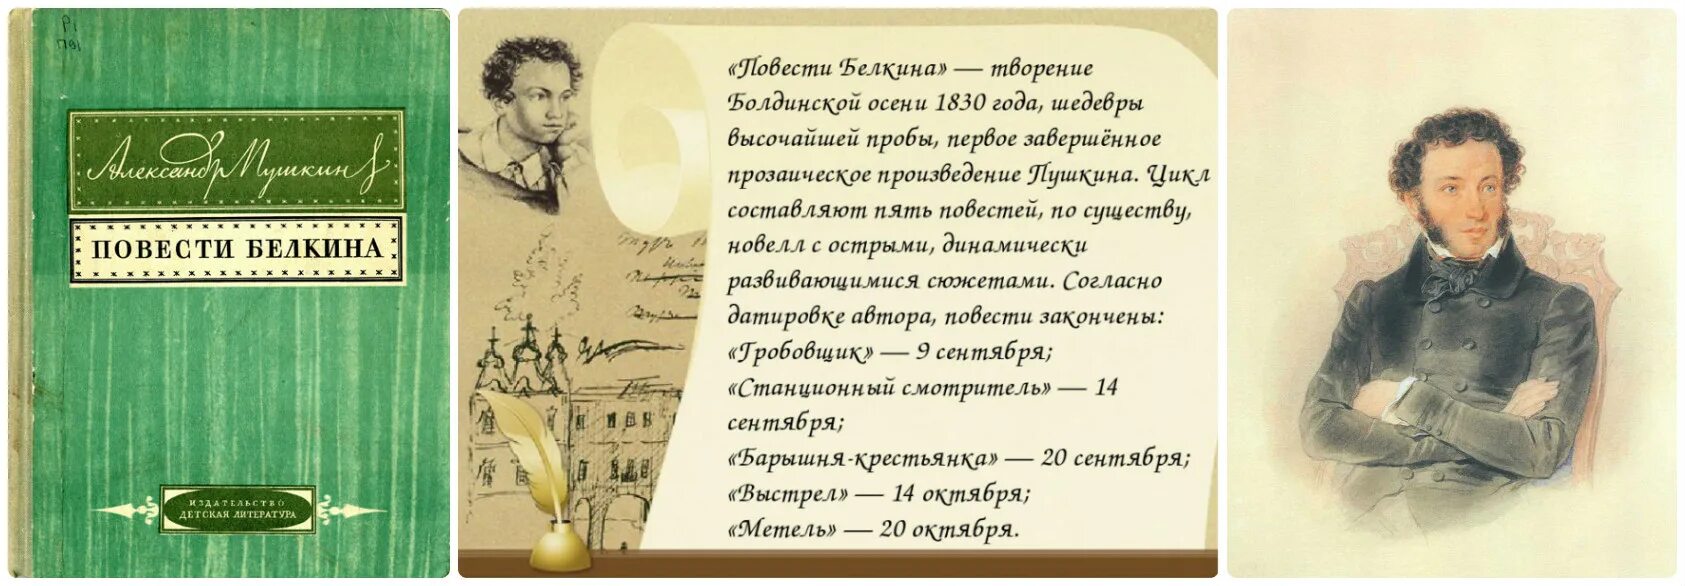 Р1
П91
Александр Пушкин
ПОВЕСТИ БЕЛКИНА
ИЗДАТЕЛЬСТВО
ДЕТСКАЯ ЛИТЕРАТУРА
«Повести Белкина» — творение
Болдинской осени 1830 года, шедевры
высочайшей пробы, первое завершённое
прозаическое произведение Пушкина. Цикл
составляют пять повестей, по существу,
новелл с острыми, динамически
развивающимися сюжетами. Согласно
датировке автора, повести закончены:
«Гробовщик» — 9 сентября;
«Станционный смотритель» — 14
сентября;
«Барышня-крестьянка» — 20 сентября;
«Выстрел» — 14 октября;
«Метель» — 20 октября.